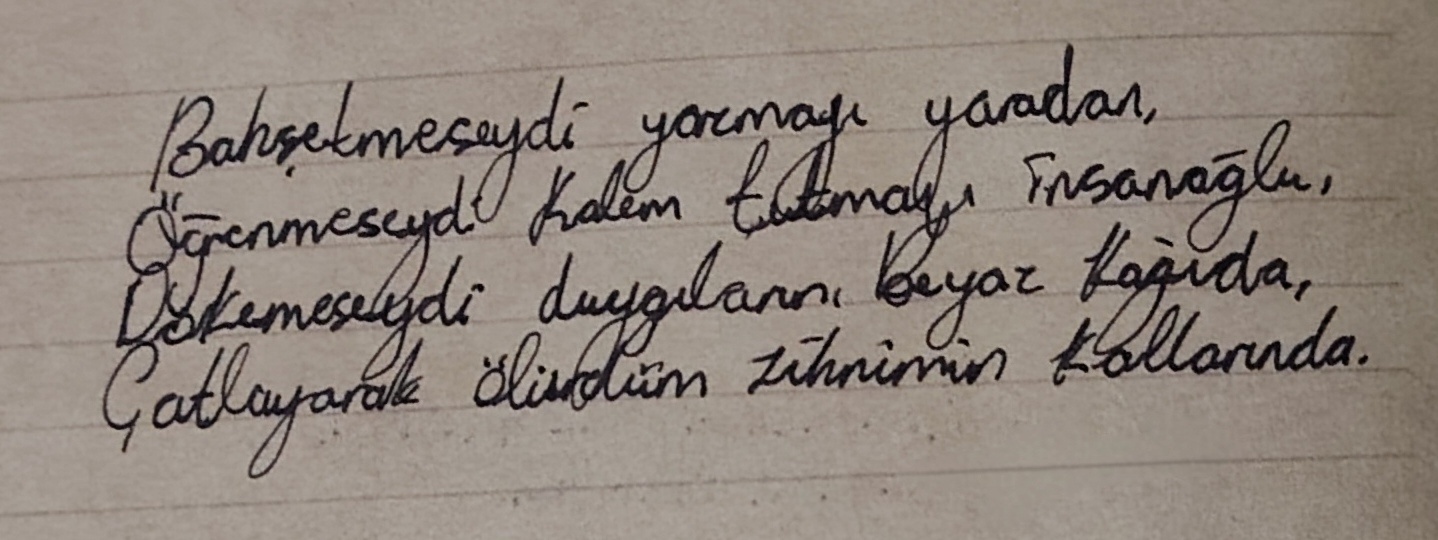 Bahşetmeseydi yazmayı yaradan,
Öğrenmeseydi kalem tutmayı insanoğlu,
Dökemeseydi duygularını beyaz kağıda,
Çatlayarak ölürdüm zihnimin kollarında.